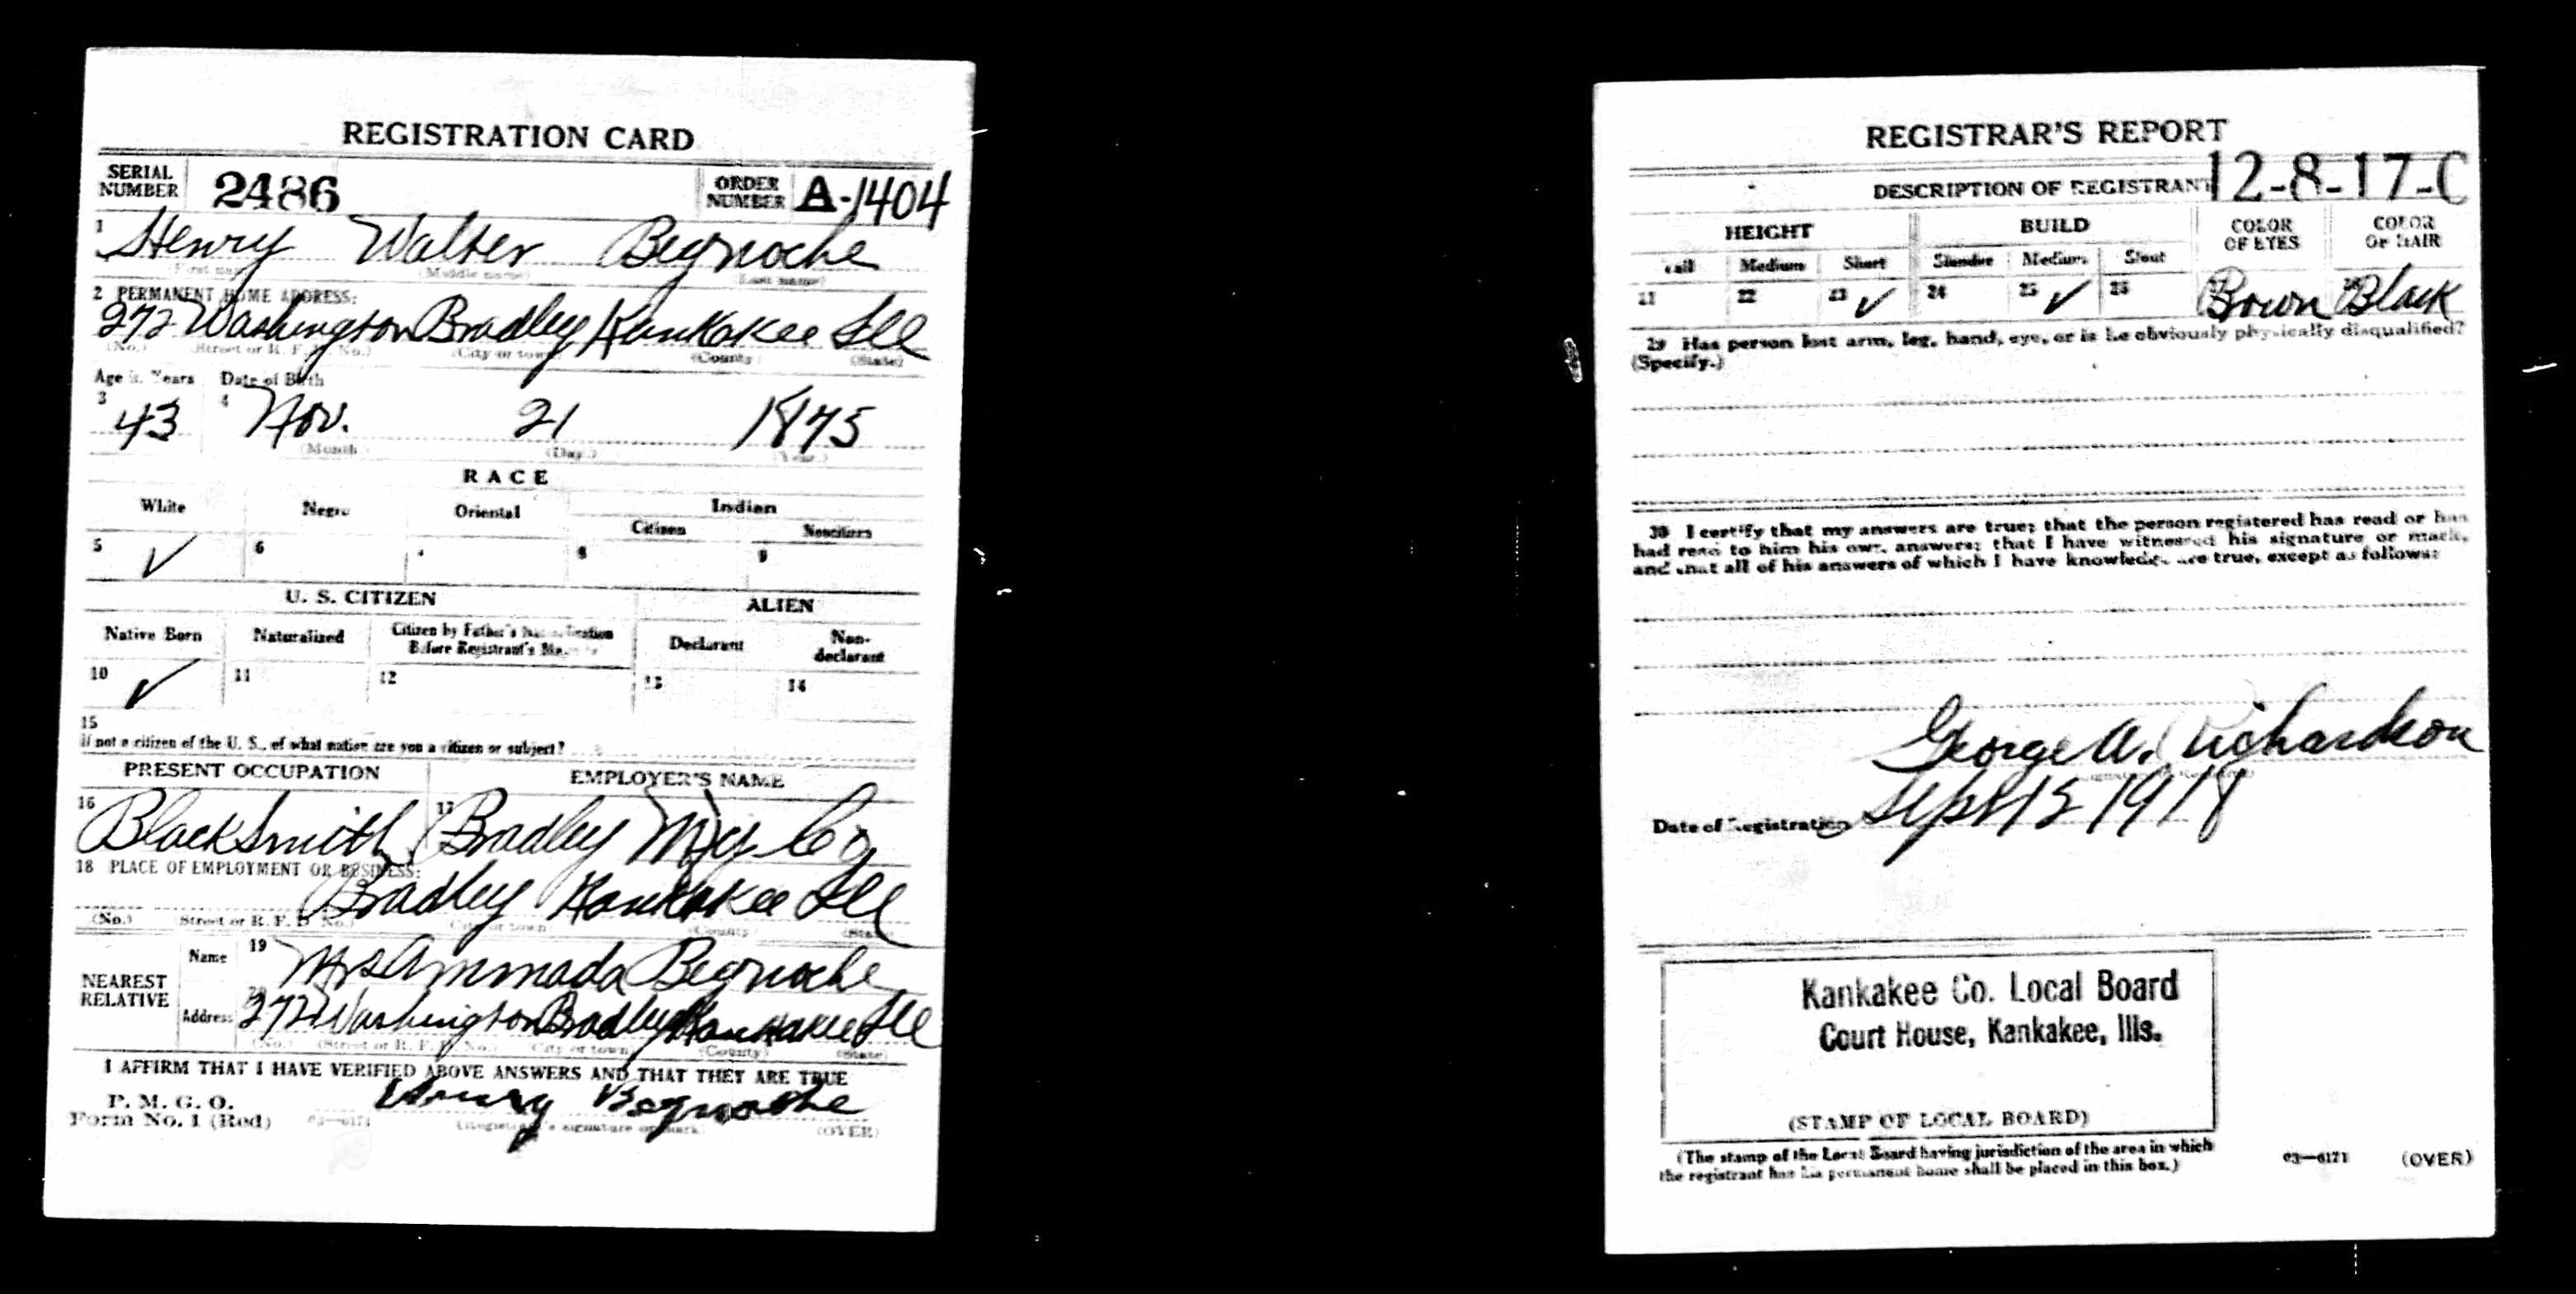 REGISTRATION CARD
SERIAL NUMBER 2486 ORDER NUMBER A-1404
1 Henry Walter Begnoche
(First name) (Middle name) (Last name)
2 PERMANENT HOME ADDRESS:
272 Washington Bradley Kankakee Ill
(No.) (Street or R. F. D. No.) (City or town) (County) (State)
Age in Years Date of Birth
3 43 4 Nov. 21 1875
(Month) (Day) (Year)
RACE
White Negro Oriental Indian
Citizen Noncitizen
5 ✓ 6 8 9
U. S. CITIZEN ALIEN
Native Born Naturalized Citizen by Father's Naturalization Before Registrant's Declarant Non-declarant
10 ✓ 11 12 13 14
15
If not a citizen of the U. S., of what nation are you a citizen or subject?
PRESENT OCCUPATION EMPLOYER'S NAME
16 BlackSmith 17 Bradley Mfg Co
18 PLACE OF EMPLOYMENT OR BUSINESS:
Bradley Kankakee Ill
(No.) (Street or R. F. D. No.) (City or town) (County) (State)
NEAREST RELATIVE
Name 19 Mrs Ammada Begnoche
Address 20 272 Washington Bradley Kankakee Ill
(No.) (Street or R. F. D. No.) (City or town) (County) (State)
I AFFIRM THAT I HAVE VERIFIED ABOVE ANSWERS AND THAT THEY ARE TRUE
P. M. G. O.
Form No. 1 (Red) 03—6171 Henry Begnoche
(Registrant's signature or mark) (OVER)
REGISTRAR'S REPORT
12-8-17-C
DESCRIPTION OF REGISTRANT
HEIGHT BUILD COLOR OF EYES COLOR OF HAIR
Tall Medium Short Slender Medium Stout
21 22 23 ✓ 24 25 ✓ 26 27 Brown 28 Black
29 Has person lost arm, leg, hand, eye, or is he obviously physically disqualified?
(Specify.)
30 I certify that my answers are true; that the person registered has read or has
had read to him his own answers; that I have witnessed his signature or mark,
and that all of his answers of which I have knowledge are true, except as follows:
George A. Richardson
Date of Registration Sept 12 1918
Kankakee Co. Local Board
Court House, Kankakee, Ills.
(STAMP OF LOCAL BOARD)
(The stamp of the Local Board having jurisdiction of the area in which
the registrant has his permanent home shall be placed in this box.)
03—6171 (OVER)